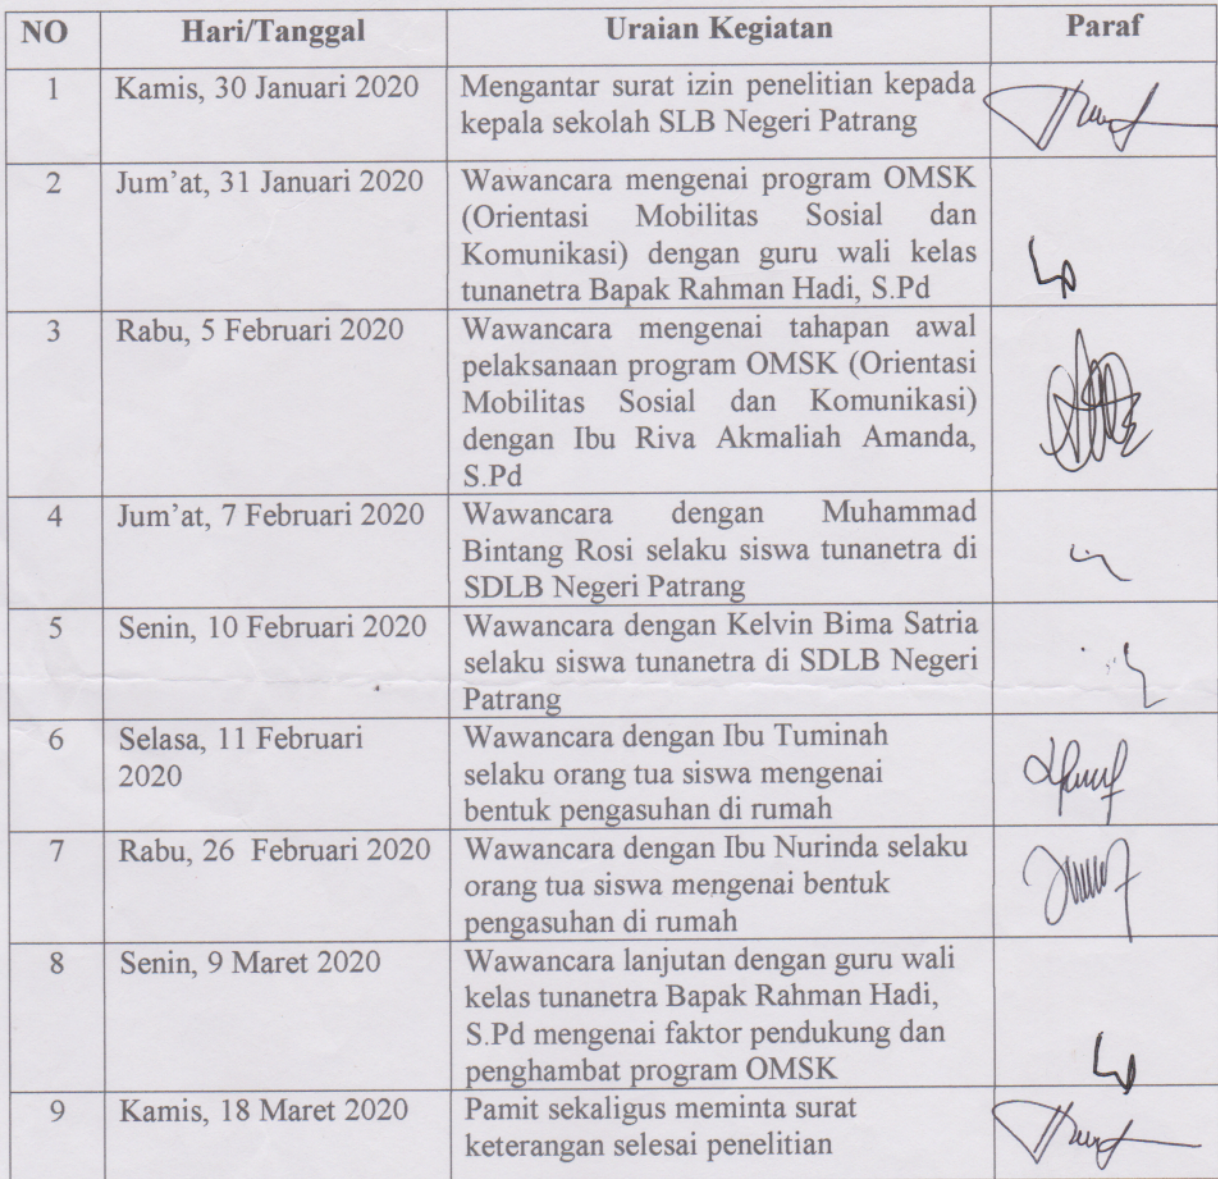 NO Hari/Tanggal Uraian Kegiatan Paraf
1 Kamis, 30 Januari 2020 Mengantar surat izin penelitian kepada
kepala sekolah SLB Negeri Patrang
2 Jum'at, 31 Januari 2020 Wawancara mengenai program OMSK
(Orientasi Mobilitas Sosial dan
Komunikasi) dengan guru wali kelas
tunanetra Bapak Rahman Hadi, S.Pd
3 Rabu, 5 Februari 2020 Wawancara mengenai tahapan awal
pelaksanaan program OMSK (Orientasi
Mobilitas Sosial dan Komunikasi)
dengan Ibu Riva Akmaliah Amanda,
S.Pd
4 Jum'at, 7 Februari 2020 Wawancara dengan Muhammad
Bintang Rosi selaku siswa tunanetra di
SDLB Negeri Patrang
5 Senin, 10 Februari 2020 Wawancara dengan Kelvin Bima Satria
selaku siswa tunanetra di SDLB Negeri
Patrang
6 Selasa, 11 Februari Wawancara dengan Ibu Tuminah
2020 selaku orang tua siswa mengenai
bentuk pengasuhan di rumah
7 Rabu, 26 Februari 2020 Wawancara dengan Ibu Nurinda selaku
orang tua siswa mengenai bentuk
pengasuhan di rumah
8 Senin, 9 Maret 2020 Wawancara lanjutan dengan guru wali
kelas tunanetra Bapak Rahman Hadi,
S.Pd mengenai faktor pendukung dan
penghambat program OMSK
9 Kamis, 18 Maret 2020 Pamit sekaligus meminta surat
keterangan selesai penelitian